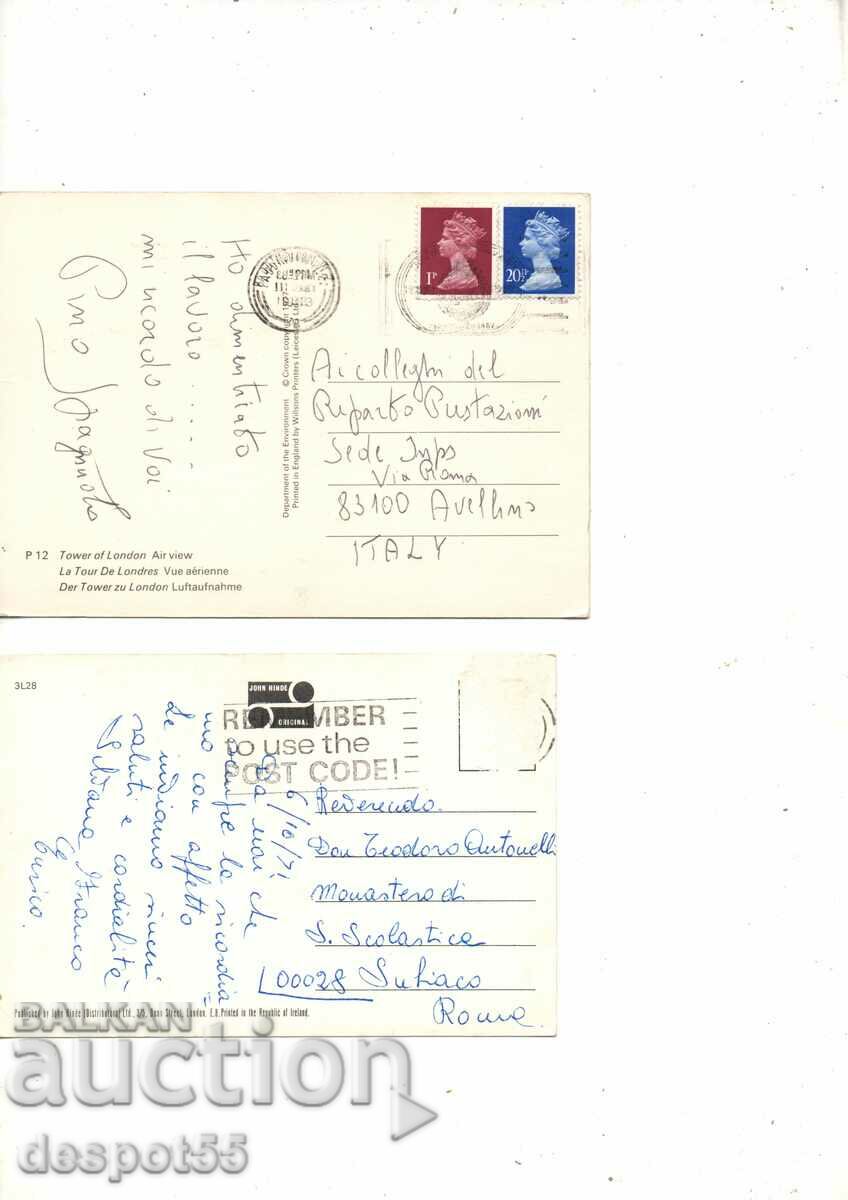 Ho dimenticato
il lavoro .....
mi ricordo di voi
Pino Spagnuolo
PADDINGTON
1P
20½P
Department of the Environment © Crown copyright
Printed in England by Willsons Printers (Leicester) Ltd
Ai colleghi del
Riparto Prestazioni
Sede Inps
Via Roma
83100 Avellino
ITALY
P 12 Tower of London Air view
La Tour De Londres Vue aérienne
Der Tower zu London Luftaufnahme
3L28
JOHN HINDE
ORIGINAL
REMEMBER
to use the
POST CODE!
6/10/71
Da noi che
sempre la ricordia=
mo con affetto
Le inviamo sinceri
saluti e cordialità
Silvana Franco
Enrico.
Reverendo
Don Teodoro Antonelli
Monastero di
S. Scolastica
00028 Subiaco
Roma
Published by John Hinde (Distributors) Ltd., 3/5, Dean Street, London. E.8. Printed in the Republic of Ireland.
BALKAN
auction
despot55